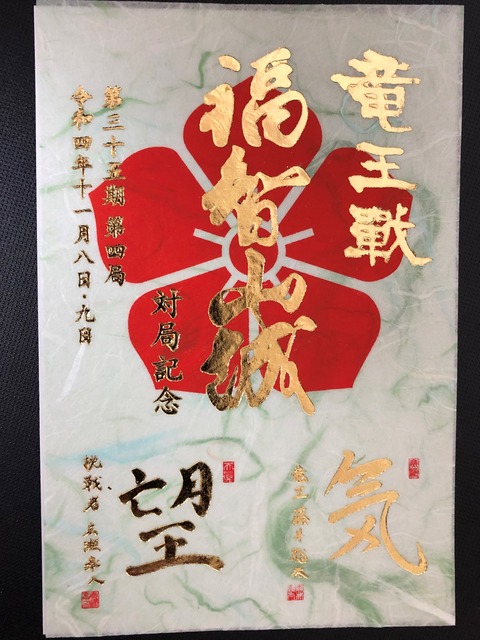 竜王戦
福智山城
第三十五期 第四局
令和四年十一月八日・九日
対局記念
気
竜王 藤井聡太
望
挑戦者 広瀬章人